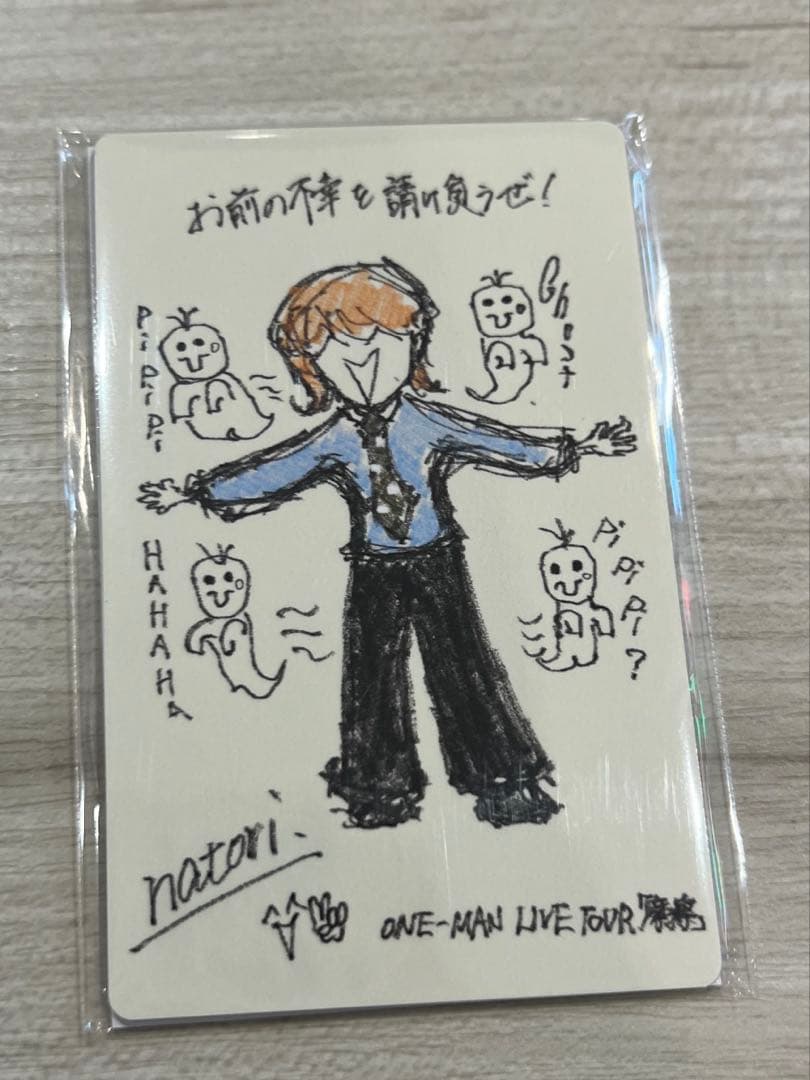 お前の不幸を請け負うぜ!
Pi Pi Pi Pi
Ghost
HAHAHAHA
Pi Pi Pi?
natori.
ONE-MAN LIVE TOUR